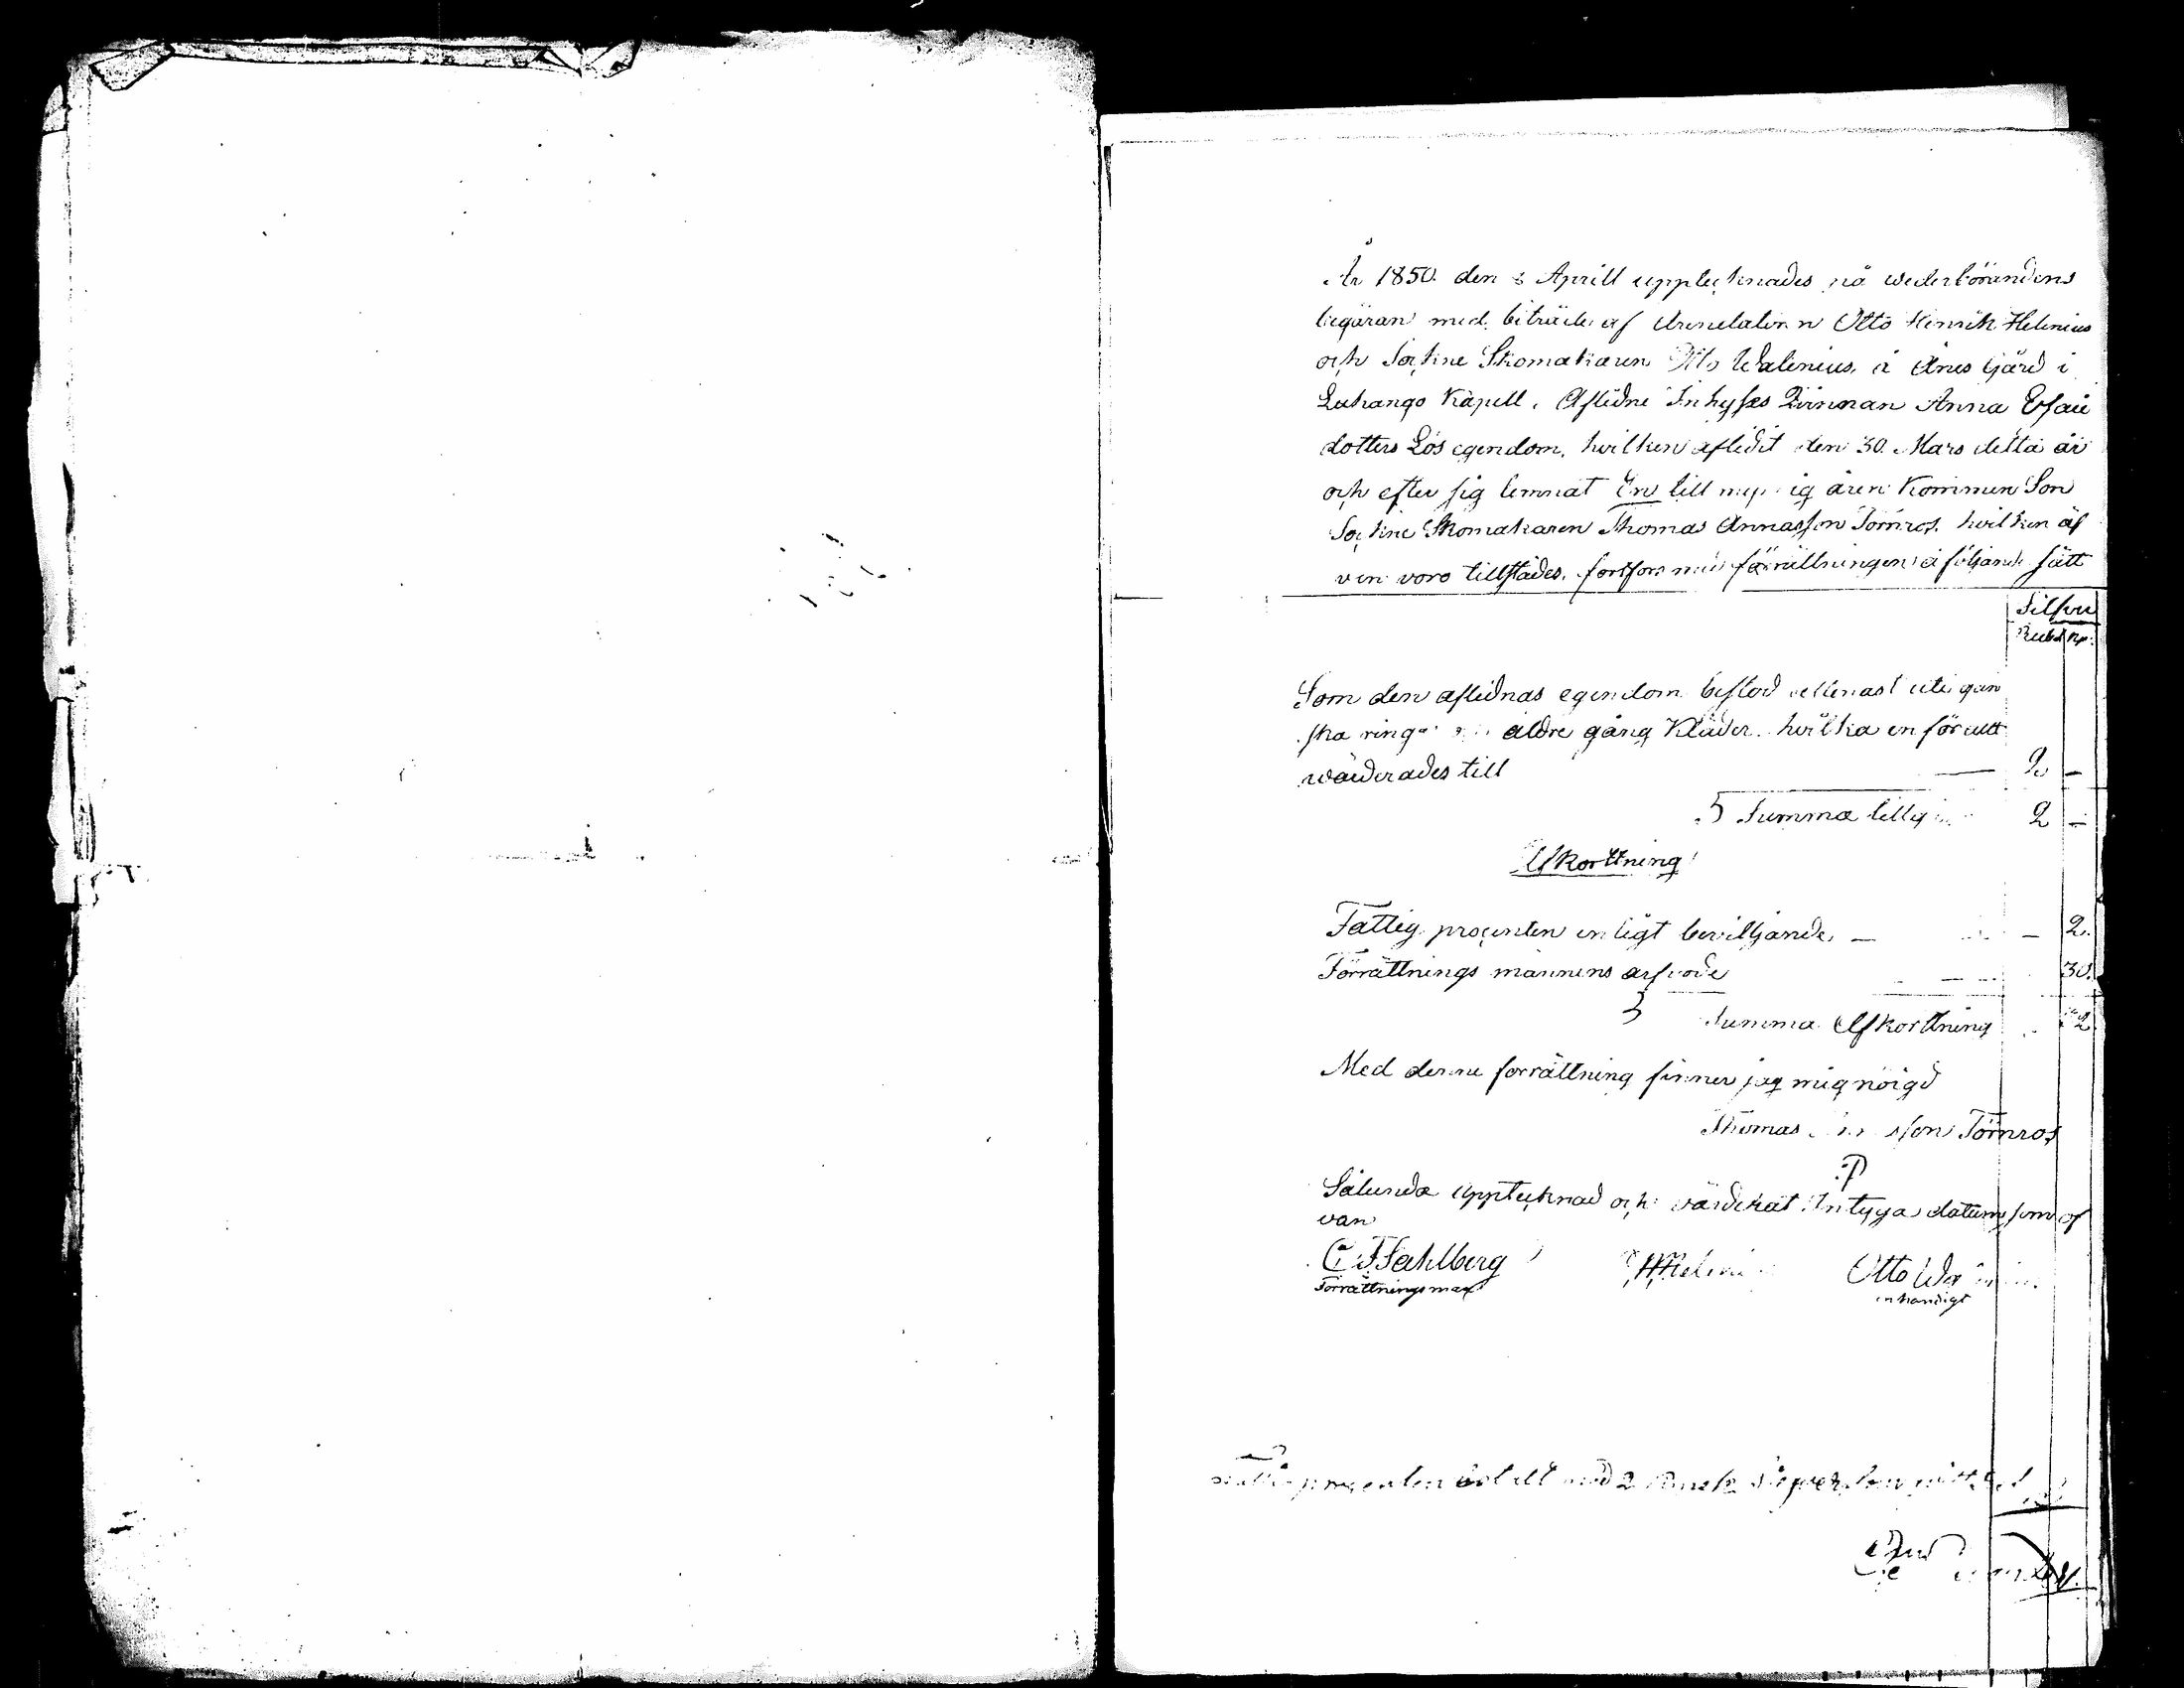 År 1850. den 8 Aprill upptecknades på wederbörandens
begäran med biträde af Arendatorn Otto Henrik Helenius
och Sockne Skomakaren Otto Walenius, å Anis Gård i
Luhango Kapell, Aflidne Inhyses Qvinnan Anna Esaie
dotters Lös egendom, hvilken aflidit den 30. Mars detta år
och efter sig lemnat En till myndig åren Kommen Son
Sockne Skomakaren Thomas Annasson Törnros, hvilken äf
ven voro tillstädes, fortfors med förrättningen å följande sätt
Silfver
Rubel Kp.
Som den aflidnas egendom bestod allenast uti gan
ska ringa äldre gång Kläder, hvilka en för allt
wärderades till — 2 —
Summa tillgång 2 —
Afkorttning
Fattig procenten enligt beviljande — — 2.
Förrättnings mannens arfvode — 30.
Summa Afkorttning 32
Med denne forrättning finner jag mig nöigd
Thomas Annasson Törnros
Sålunda upptecknad och värderat Intyga datum som of
van
C F Sahlberg Otto Walenius
Förrättningsman
enhändigt
Fattigprocenten betalt med 2 kopek Silfver